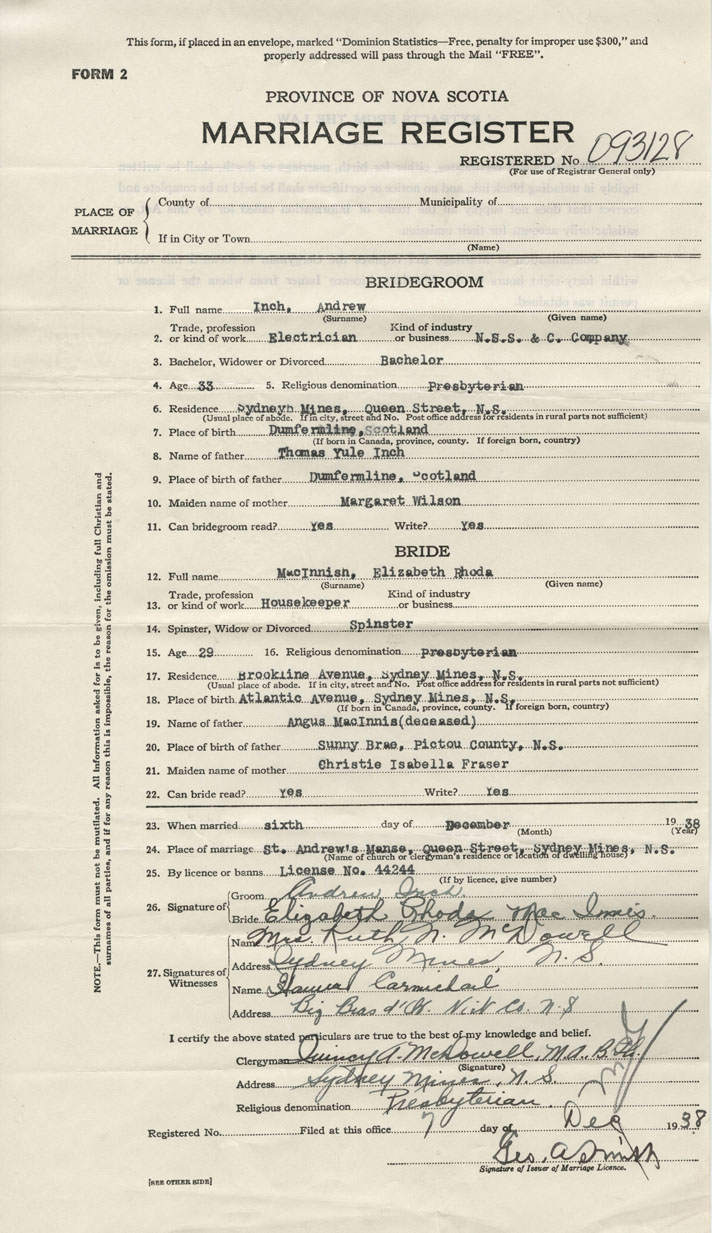 This form, if placed in an envelope, marked "Dominion Statistics—Free, penalty for improper use $300," and
properly addressed will pass through the Mail "FREE".
FORM 2
PROVINCE OF NOVA SCOTIA
MARRIAGE REGISTER
REGISTERED No. 093128
(For use of Registrar General only)
PLACE OF MARRIAGE
County of Municipality of
If in City or Town
(Name)
BRIDEGROOM
1. Full name Inch, Andrew
(Surname) (Given name)
Trade, profession Kind of industry
2. or kind of work Electrician or business N.S.S. & C. Company
3. Bachelor, Widower or Divorced Bachelor
4. Age 33 5. Religious denomination Presbyterian
6. Residence Sydneyh Mines, Queen Street, N.S.
(Usual place of abode. If in city, street and No. Post office address for residents in rural parts not sufficient)
7. Place of birth Dumfermline, Scotland
(If born in Canada, province, county. If foreign born, country)
8. Name of father Thomas Yule Inch
9. Place of birth of father Dumfermline, Scotland
10. Maiden name of mother Margaret Wilson
11. Can bridegroom read? Yes Write? Yes
BRIDE
12. Full name MacInnish, Elizabeth Rhoda
(Surname) (Given name)
Trade, profession Kind of industry
13. or kind of work Housekeeper or business
14. Spinster, Widow or Divorced Spinster
15. Age 29 16. Religious denomination Presbyterian
17. Residence Brookline Avenue, Sydney Mines, N.S.
(Usual place of abode. If in city, street and No. Post office address for residents in rural parts not sufficient)
18. Place of birth Atlantic Avenue, Sydney Mines, N.S.
(If born in Canada, province, county. If foreign born, country)
19. Name of father Angus MacInnis(deceased)
20. Place of birth of father Sunny Brae, Pictou County, N.S.
21. Maiden name of mother Christie Isabella Fraser
22. Can bride read? Yes Write? Yes
23. When married sixth day of December 1938
(Month) (Year)
24. Place of marriage St. Andrew's Manse, Queen Street, Sydney Mines, N.S.
(Name of church or clergyman's residence or location of dwelling house)
25. By licence or banns License No. 44244
(If by licence, give number)
26. Signature of
Groom Andrew Inch
Bride Elizabeth Rhoda Mac Innis.
27. Signatures of Witnesses
Name Mrs. Ruth N. McDowell
Address Sydney Mines, N.S.
Name Carmichael
Address Big Bras d'Or. Vic. Co. N.S
I certify the above stated particulars are true to the best of my knowledge and belief.
Clergyman Quincy A. McDowell, M.A., B.Th.
(Signature)
Address Sydney Mines, N.S.
Religious denomination Presbyterian.
Registered No. Filed at this office 7 day of Dec 1938
Geo. A Smith
Signature of Issuer of Marriage Licence.
[SEE OTHER SIDE]
NOTE.—This form must not be mutilated. All information asked for is to be given, including full Christian and
surnames of all parties, and if for any reason this is impossible, the reason for the omission must be stated.